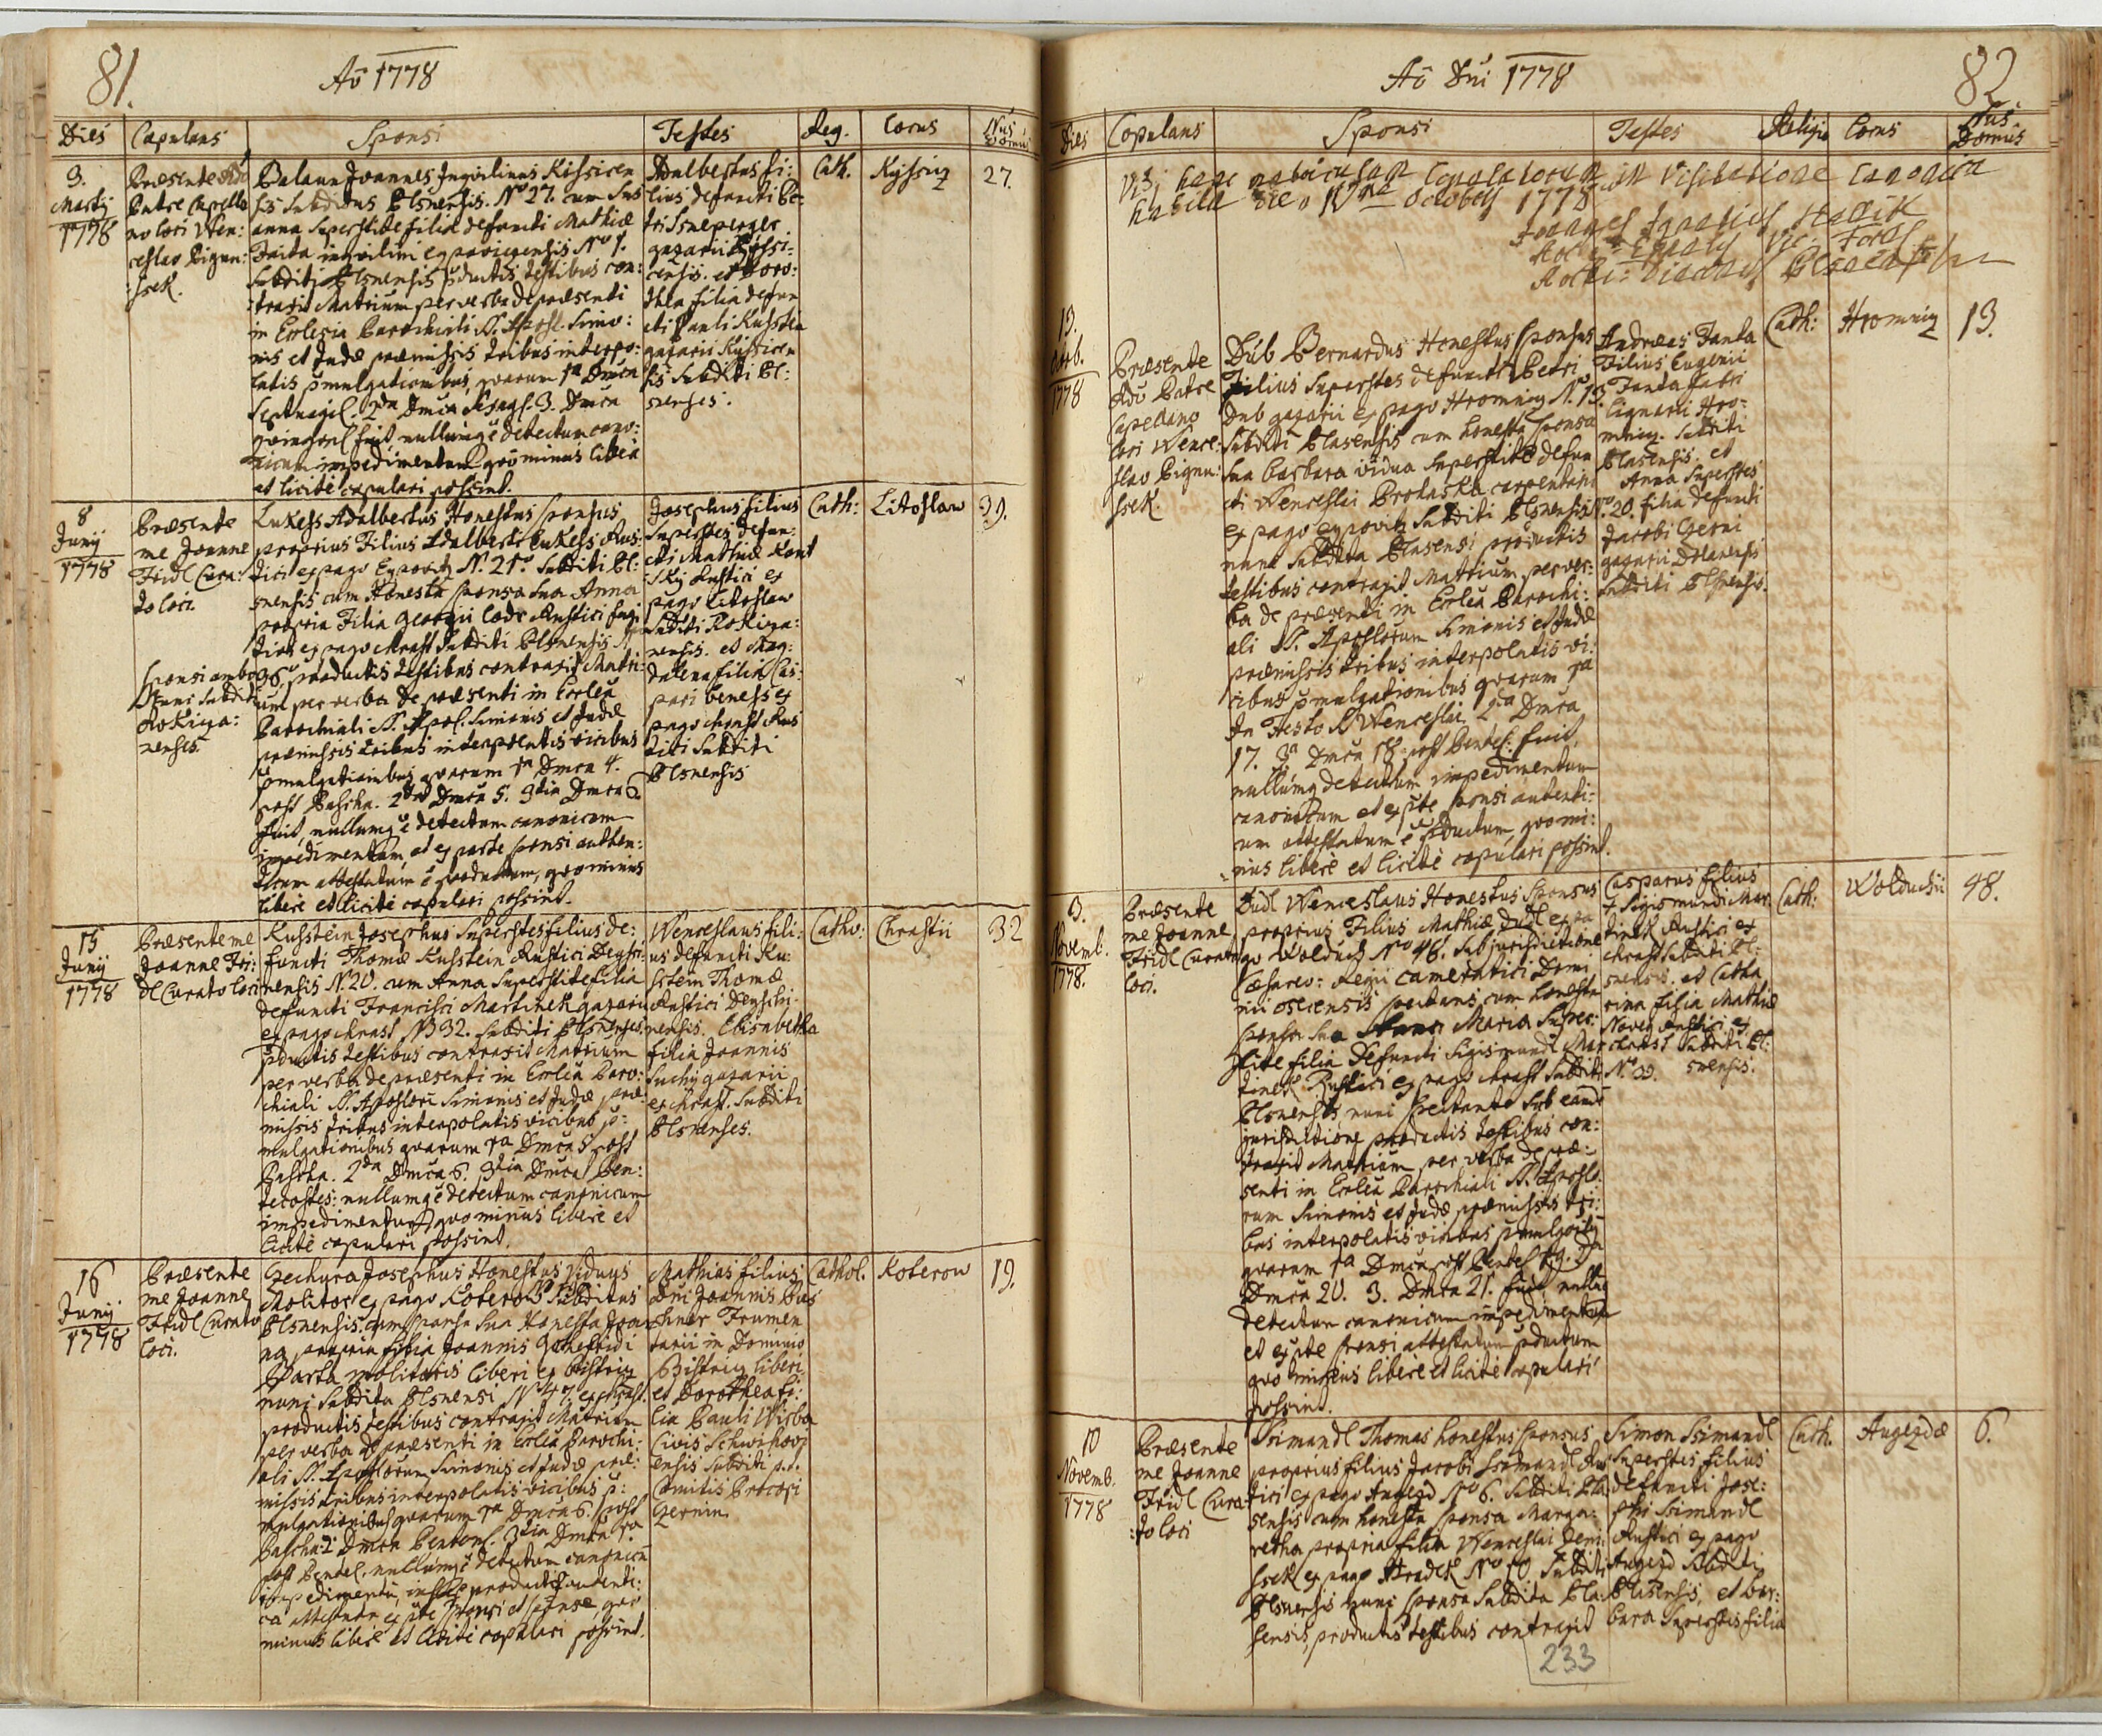 81.
Aõ 1778
Dies Copulans Sponsi Testes Rel. Locus Nus Domus
3.
Martij
1778
Præsente Adõ
Patre Capella
no loci Wen:
ceslao Bignu:
ssek.
Balaun Joannes Inquilinus Kissicen
sis Subditus Plsnensis. No 27. cum Sus
anna Superstite filia defuncti Mathiæ
Faita inquilini ex No 1.
Subditi Plsnensis pductis testibus con:
traxit Matrium per verba de præsenti
in Ecclesia Parochiali SS. Apost. Simo:
nis et Judæ præmissis tribus interpo:
latis pmulgationibus, quarum 1a Dmca
Septuages. 2da Dmca Sexages. 3. Dmca
quinquages fuit, nullumq̃ ẽ detectum cano:
nicum impedimentum quõ minus liberè
et licitè copulari possint.
Adalbertus fi:
lius defuncti Pe:
tri
gazarii Kyssi:
censis. et Doro:
thea filia defun
cti Pauli Kussten
gazarii Kyssicen
sis Subditi Pl:
snenses.
Cath.
Kyssicz
27.
8
Junij
1778
Præsente
me Joanne
Fridl Cura:
to loci.
Sponsi ambo
nunc Subditi
Rokiza:
nenses
Lukess Adalbertus Honestus Sponsus
proprius Filius Adalberti Lukess Rus:
tici ex pago Eypowitz No. 21. Subditi Pl:
snensis cum Honesta Sponsa Sua Anna
propria Filia Georgii Rustici
ex pago Chrast Subditi Plsnensis No
36. productis testibus contraxit Matri:
um per verba de præsenti in Ecclã
Parochiali SS. Apost. Simonis et Judæ
præmissis tribus interpolatis vicibus
pmulgationibus quarum 1a Dmca 4.
post Pascha. 2da Dmca 5. 3tia Dmca 6
fuit, nullumq̃ ẽ detectum canonicum
impedimentum, et ex parte sponsi authen:
ticum attestatum ẽ productum, quominus
liberè et licitè copulari possint.
Josephus filius
Superstes defun:
cti Mathiæ
Rustici ex
pago Litohlaw
Subditi Rokiza:
nensis. et Mag:
dalena filia Cas:
pari Beness ex
pago Chrast Rus
tici Subditi
Plsnensis
Cath:
Litohlaw
39.
15
Junij
1778
Præsente me
Joanne Fri:
dl Curato loci
Kusstein Josephus Superstes filius de:
functi Thomæ Kusstein Rustici Deyssi:
nensis N. 20. cum Anna Superstite filia
defuncti Francisci Martinek gazarii
ex pago Chrast No 32. Subditi Plsnenses.
pductis testibus contraxit Matrium
per verba de præsenti in Ecclã Paro:
chiali SS. Apostlorũ Simonis et Judæ præ:
missis tribus interpolatis vicibus p:
mulgationibus quarum 1a Dmca 5 post
Pascha. 2da Dmca 6. 3tia Dmca Pen:
tecostes: nullumq̃ ẽ detectum canonicum
impedimentum quominus liberè et
licitè copulari possint.
Wenceslaus fili:
us defuncti Ku:
sstein Thomæ
Rustici Deyssi:
nensis. Elisabetha
filia Joannis
Suchy gazarii
ex Chrast. Subditi
Plsnenses.
Catho:
Chrastii
32
16
Junij
1778
Præsente
me Joanne
Fridl Curato
loci.
Czechura Josephus Honestus Viduus
Molitor ex pago Koterow Subditus
Plsnensis, cum sponsa sua Honesta Joan
na, propria filia Joannis Gottefridi
Parta molitoris liberi ex Bistriz
nunc Subdita Plsnensi No 47. ex Chrast.
productis testibus contraxit Matrium
per verba de præsenti in Ecclã Parochi:
ali SS. Apostolorum Simonis et Judæ præ:
missis tribus interpolatis vicibus p:
mulgationibus quarum 1a Dmca 6. post
Pascha. 2 Dmca Pentecos. 3tia Dmca 1a
post Pentec. nullumq̃ ẽ detectum canonicũ
impedimentũ, productis autenti:
ca attestata ex pte sponsi et sponsæ, quo
minus liberè et licitè copulari possint.
Mathias filius
Dñi Joannis
Frumen
tarii in Dominio
Bistriz liberi.
et Dorothea fi:
lia Pauli Wrba
Civis Schwihovi
ensis Subditi p. t.
Comitis Procopi
Czernin.
Cathol.
Koterow
19.
Aõ Dni 1778
82
Dies Copulans Sponsi Testes Religio Locus Nus Domus
Vidi hanc matriculam Copulatorum in Visitatione Canonica
habita die 14ma Octobris 1778
Joannes Ignatius Hallik
13.
Octob.
1778
Præsente
Adõ Patre
Capellano
loci Wence:
slao Bignu:
ssek.
Dub Bernardus Honestus Sponsus
Filius Superstes defuncti Petri
Dub gazarii ex pago Hromnicz N. 13.
Subditi Plasensis cum honesta Sponsa
Sua Barbara vidua Superstite defun
cti Wenceslai Prohaska carpentarii
ex pago Eypowitz Subditi Plsnensis
nunc Subdita Plasensi productis
testibus contraxit Matrium per ver:
ba de præsenti in Ecclã Parochi:
ali SS. Apostlorum Simonis et Judæ
præmissis tribus interpolatis vi:
cibus pmulgationibus quarum 1a
In Festo S. Wenceslai, 2a Dmca
17. 3a Dmca 18. post Pentec. fuit,
nullumq̃ detectum impedimentum
canonicum et ex pte sponsi autenti:
cum attestatum ẽ pductum, quomi:
nus liberè et licitè copulari possint.
Andræas Janda
Filius Eugenii
Janda fabri
lignarii Hro:
mnicz. Subditi
Plasensis. et
Anna Superstes
No. 20. filia defuncti
Jacobi Czerni
gazarii
Subditi Plsnensis.
Cath:
Hromnicz
13.
3.
Novemb.
1778.
Præsente
me Joanne
Fridl Curato
loci.
Dudl Wenceslaus Honestus Sponsus
proprius Filius Mathiæ Dudl ex pa
go Wolduch No 48. Sub jurisdictione
Cæsareo: Regii cameratici Domi
nii Osecensis spectans, cum honesta
sponsa sua Anna Maria Super:
stite filia defuncti Sigismundi Mar
tinek Rustici ex pago Chrast Subditi
Plsnensis, nunc spectante sub eandẽ
jurisdictione productis testibus con:
traxit Matrium per verba de præ:
senti in Ecclã Parochiali SS. Apostlo:
rum Simonis et Judæ præmissis tri:
bus interpolatis vicibus pmulgõibus
quarum 1a Dmca post Pentec. 19. 2da
Dmca 20. 3. Dmca 21. fuit, nullũq̃
detectum canonicum impedimentum
et ex pte sponsi attestatum pductum
quo minus liberè et licitè copulari
possint.
Casparus filius
+ Sigismundi Mar
tinek Rustici ex
Chrast Subditi Pl:
snensis. et Catha
rina filia Mathiæ
Rustici ex
Chrast Subditi Pl:
No 39. snensis.
Cath:
Wolduchii
48.
10
Novemb.
1778
Præsente
me Joanne
Fridl Cura:
to loci
Ssimandl Thomas honestus sponsus
proprius filius Jacobi Ssimandl Rus
tici ex pago Augezd No 6. Subditi Pla
sensis cum honesta sponsa Marga:
retha propria filia Wenceslai
ssek ex pago Hradek No 10 Subditi
Plsnensis nunc sponsa Subdita Pla:
sensis, productis testibus contraxit
Simon Ssimandl
Superstes filius
defuncti Jose:
phi Ssimandl
Rustici ex pago
Augezd Subditi
Plasensis, et Bar:
bara Superstes filia
Cath.
Augezdæ
6.
233